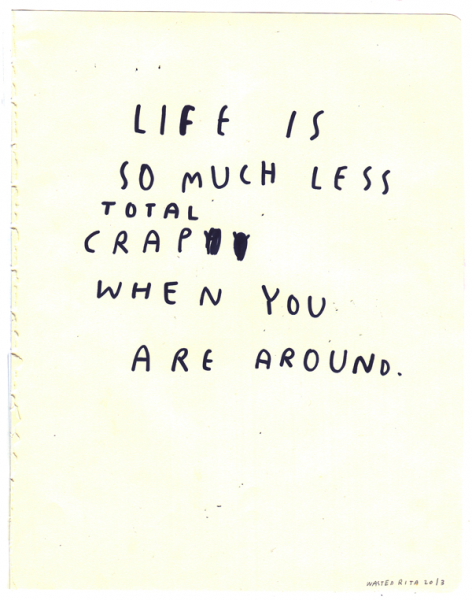 LIFE IS
SO MUCH LESS
TOTAL
CRAP
WHEN YOU
ARE AROUND.
WASTED RITA 2013